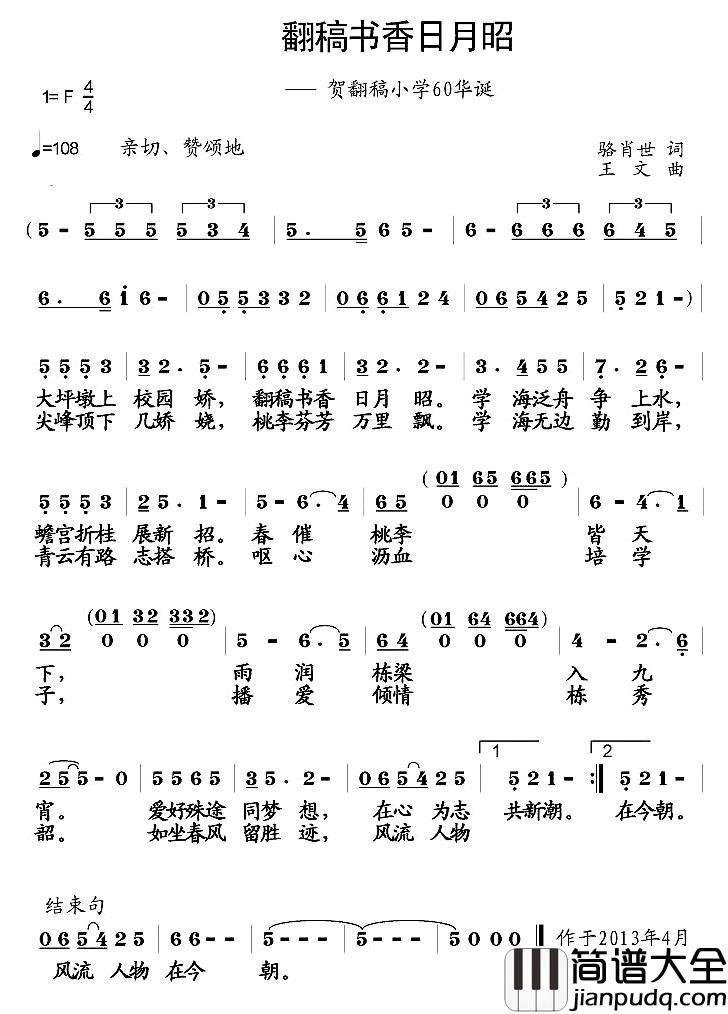 翻稿书香日月昭
—— 贺翻稿小学60华诞
1= F 4/4
♩=108 亲切、赞颂地
骆肖世 词
王 文 曲
3 3 3 3
( 5 - 5 5 5 5 3 4 | 5 . 5 6 5 - | 6 - 6 6 6 6 4 5 |
6 . 6 i 6 - | 0 5 5 3 3 2 | 0 6 6 1 2 4 | 0 6 5 4 2 5 | 5 2 1 - )
5 5 5 3 | 3 2 . 5 - | 6 6 6 1 | 3 2 . 2 - | 3 . 4 5 5 | 7 . 2 6 - |
大坪墩上 校园 娇， 翻稿书香 日月 昭。 学 海泛舟 争 上水，
尖峰顶下 几娇 娆， 桃李芬芳 万里 飘。 学 海无边 勤 到岸，
(01 65 665)
5 5 5 3 | 2 5 . 1 - | 5 - 6 . 4 | 6 5 0 0 0 | 6 - 4 . 1 |
蟾宫折桂 展新 招。 春 催 桃李 皆 天
青云有路 志搭 桥。 呕 心 沥血 培 学
(01 32 332) (01 64 664)
3 2 0 0 0 | 5 - 6 . 5 | 6 4 0 0 0 | 4 - 2 . 6 |
下， 雨 润 栋梁 入 九
子， 播 爱 倾情 栋 秀
1 2
2 5 5 - 0 | 5 5 6 5 | 3 5 . 2 - | 0 6 5 4 2 5 | 5 2 1 - :‖ 5 2 1 - |
宵。 爱好殊途 同梦 想， 在心 为志 共新潮。 在今朝。
韶。 如坐春风 留胜 迹， 风流 人物
结束句
0 6 5 4 2 5 | 6 6 - - | 5 - - - | 5 - - - | 5 0 0 0 ‖ 作于2013年4月
风流 人物 在今 朝。
简谱大全
jianpudq.com